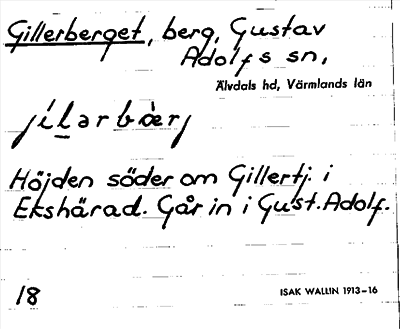 Gillerberget, berg, Gustav
Adolfs sn,
Älvdals hd, Värmlands län
jílarbæ̀rj
Höjden söder om Gillertj. i
Ekshärad. Går in i Gust. Adolf.
18
ISAK WALLIN 1913-16